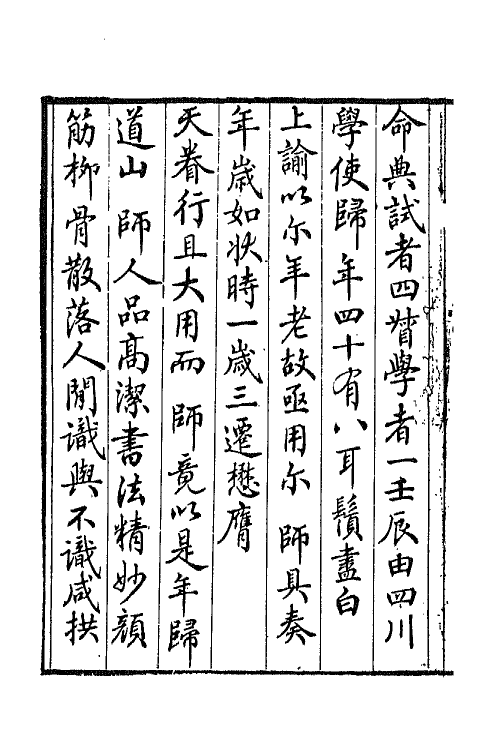 命典試者四督學者一壬辰由四川
學使歸年四十有八耳鬚盡白
上諭以尔年老故亟用尔 師具奏
年歲如狀時一歲三遷懋膺
天眷行且大用而 師竟以是年歸
道山 師人品高潔書法精妙顏
筋柳骨散落人間識與不識咸拱